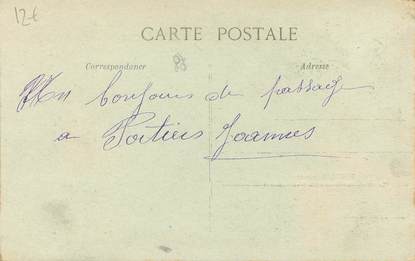 12€
CARTE POSTALE
Correspondance
Adresse
Un bonjour de passage
a Poitiers Joannes